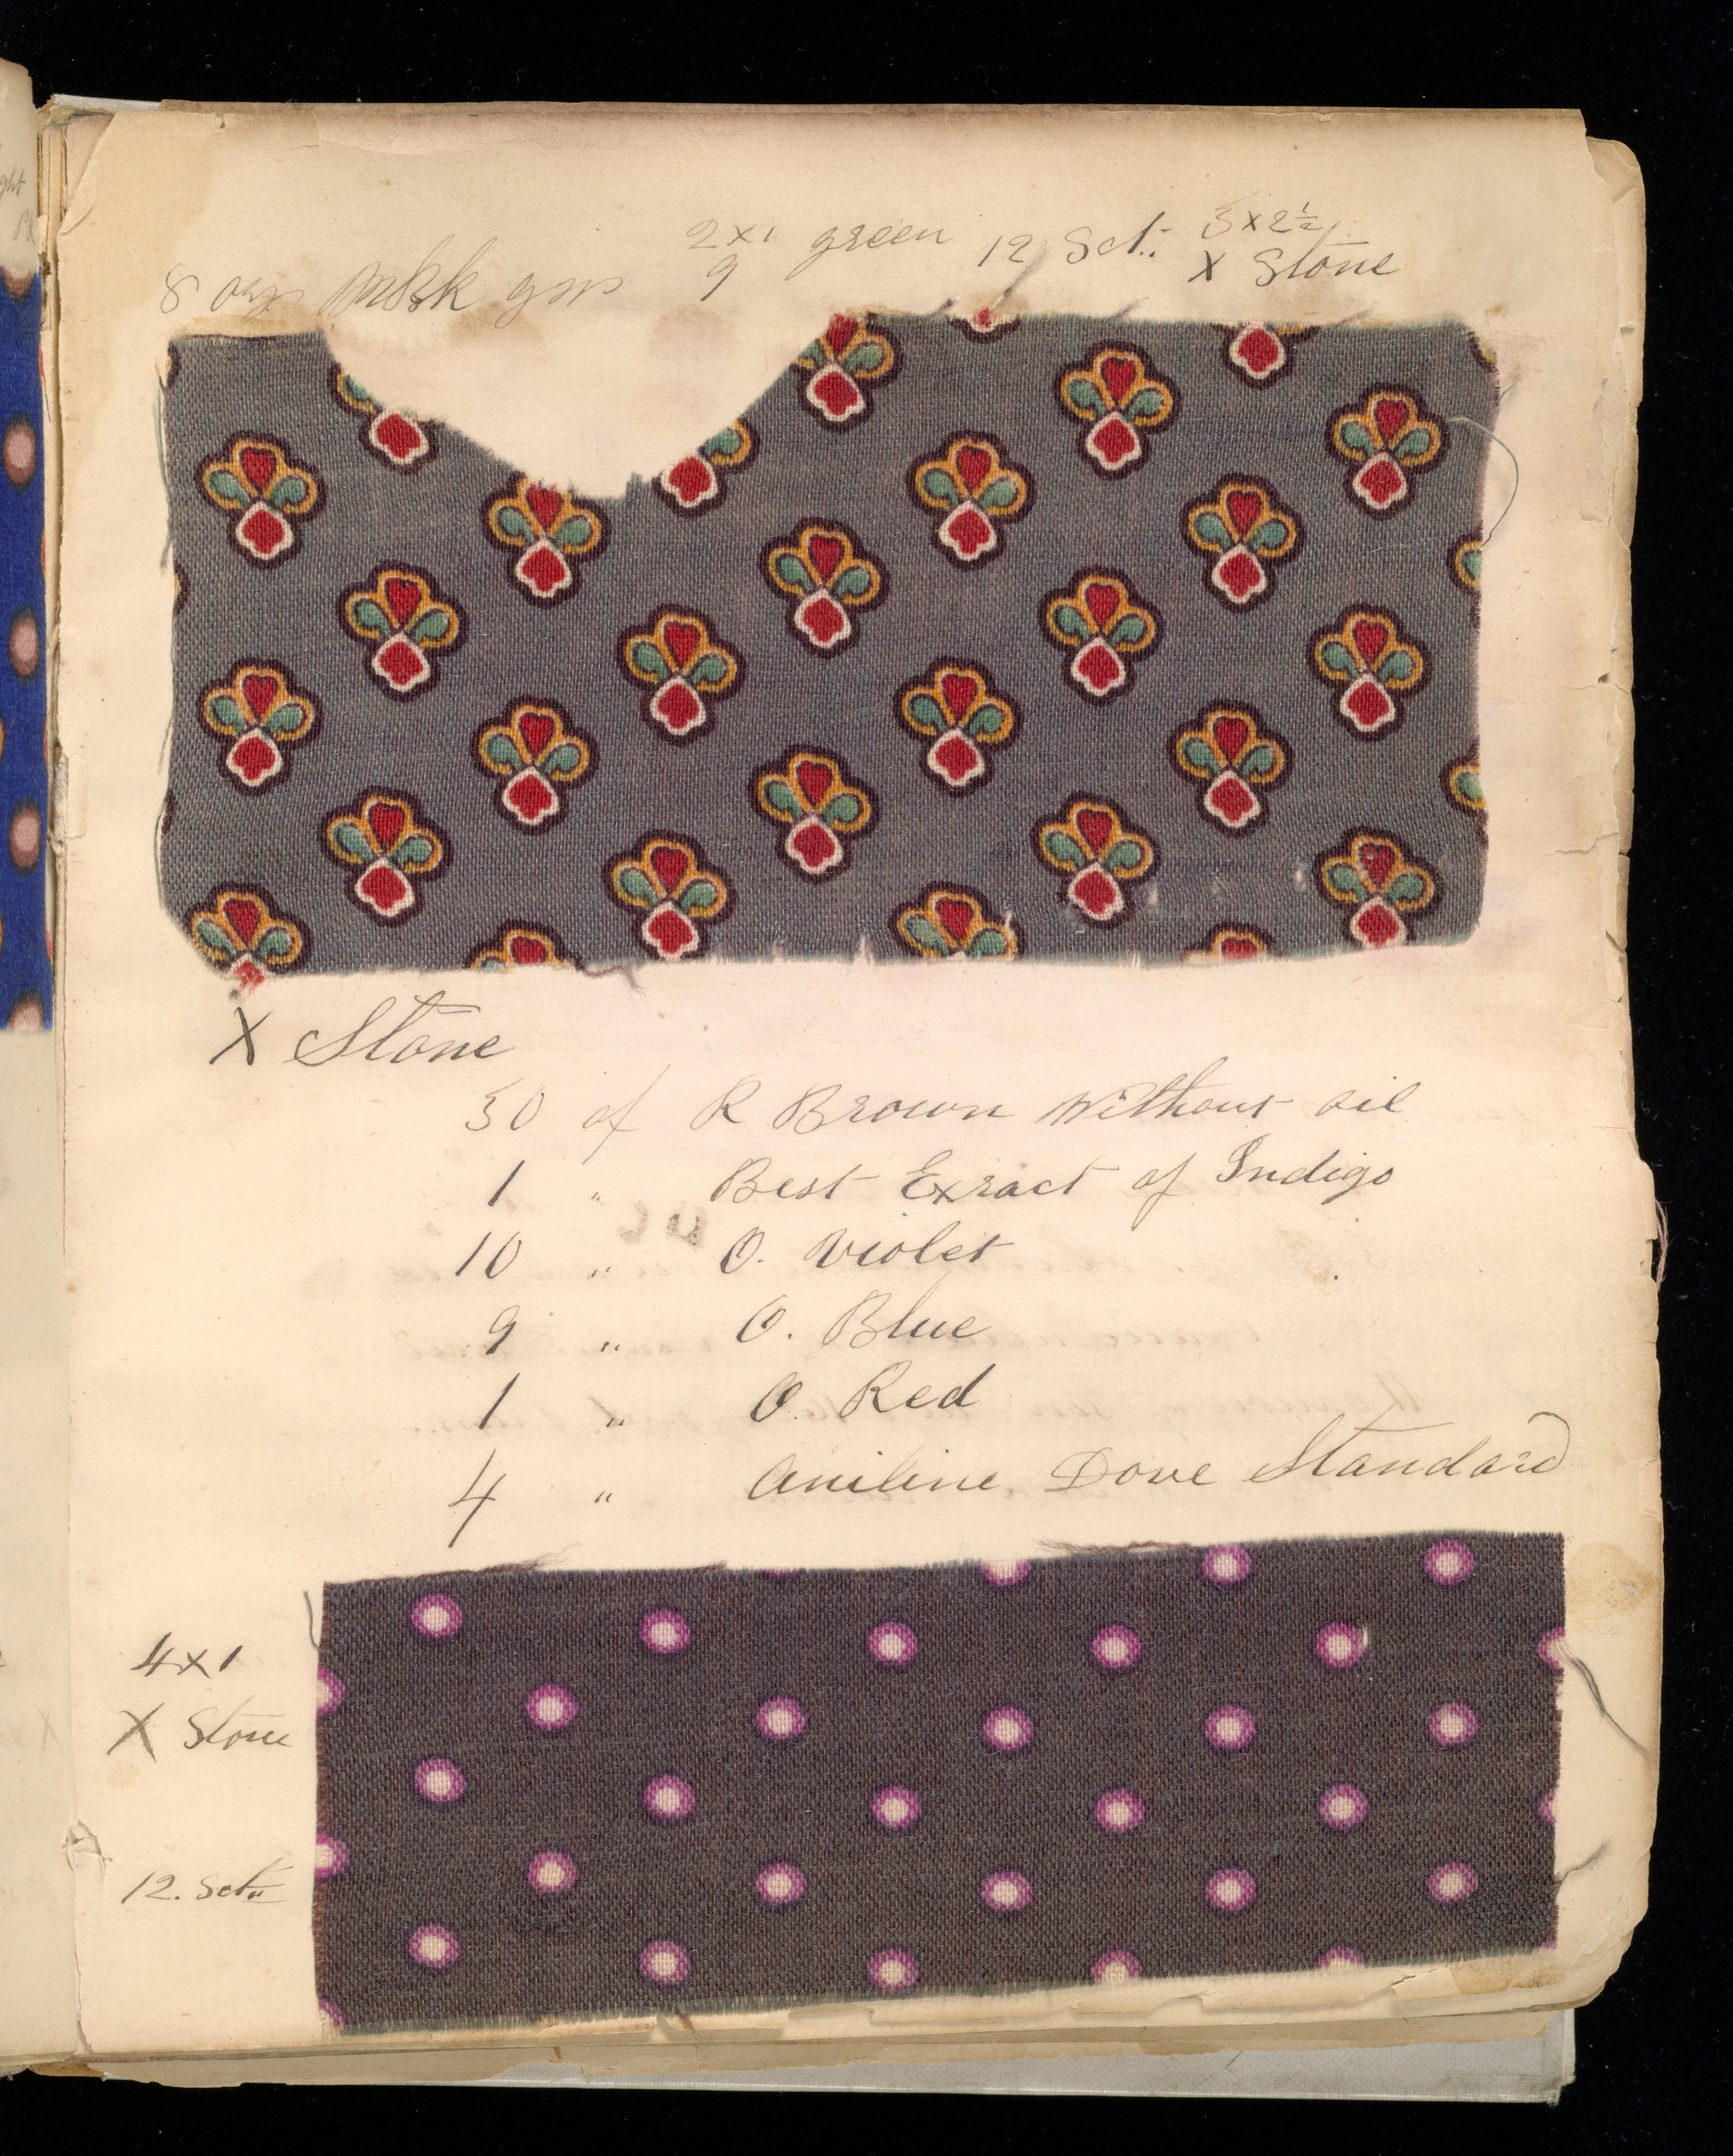 2x1 green 12 Sct: 3x2½
8 ozs gm 9 X Stone
X Stone
30 of R Brown Without oil
1 " Best Exract of Indigo
10 " O. Violet
9 " O. Blue
1 " O. Red
4 " Aniline Dove Standard
4x1
X Stone
12. Sct"